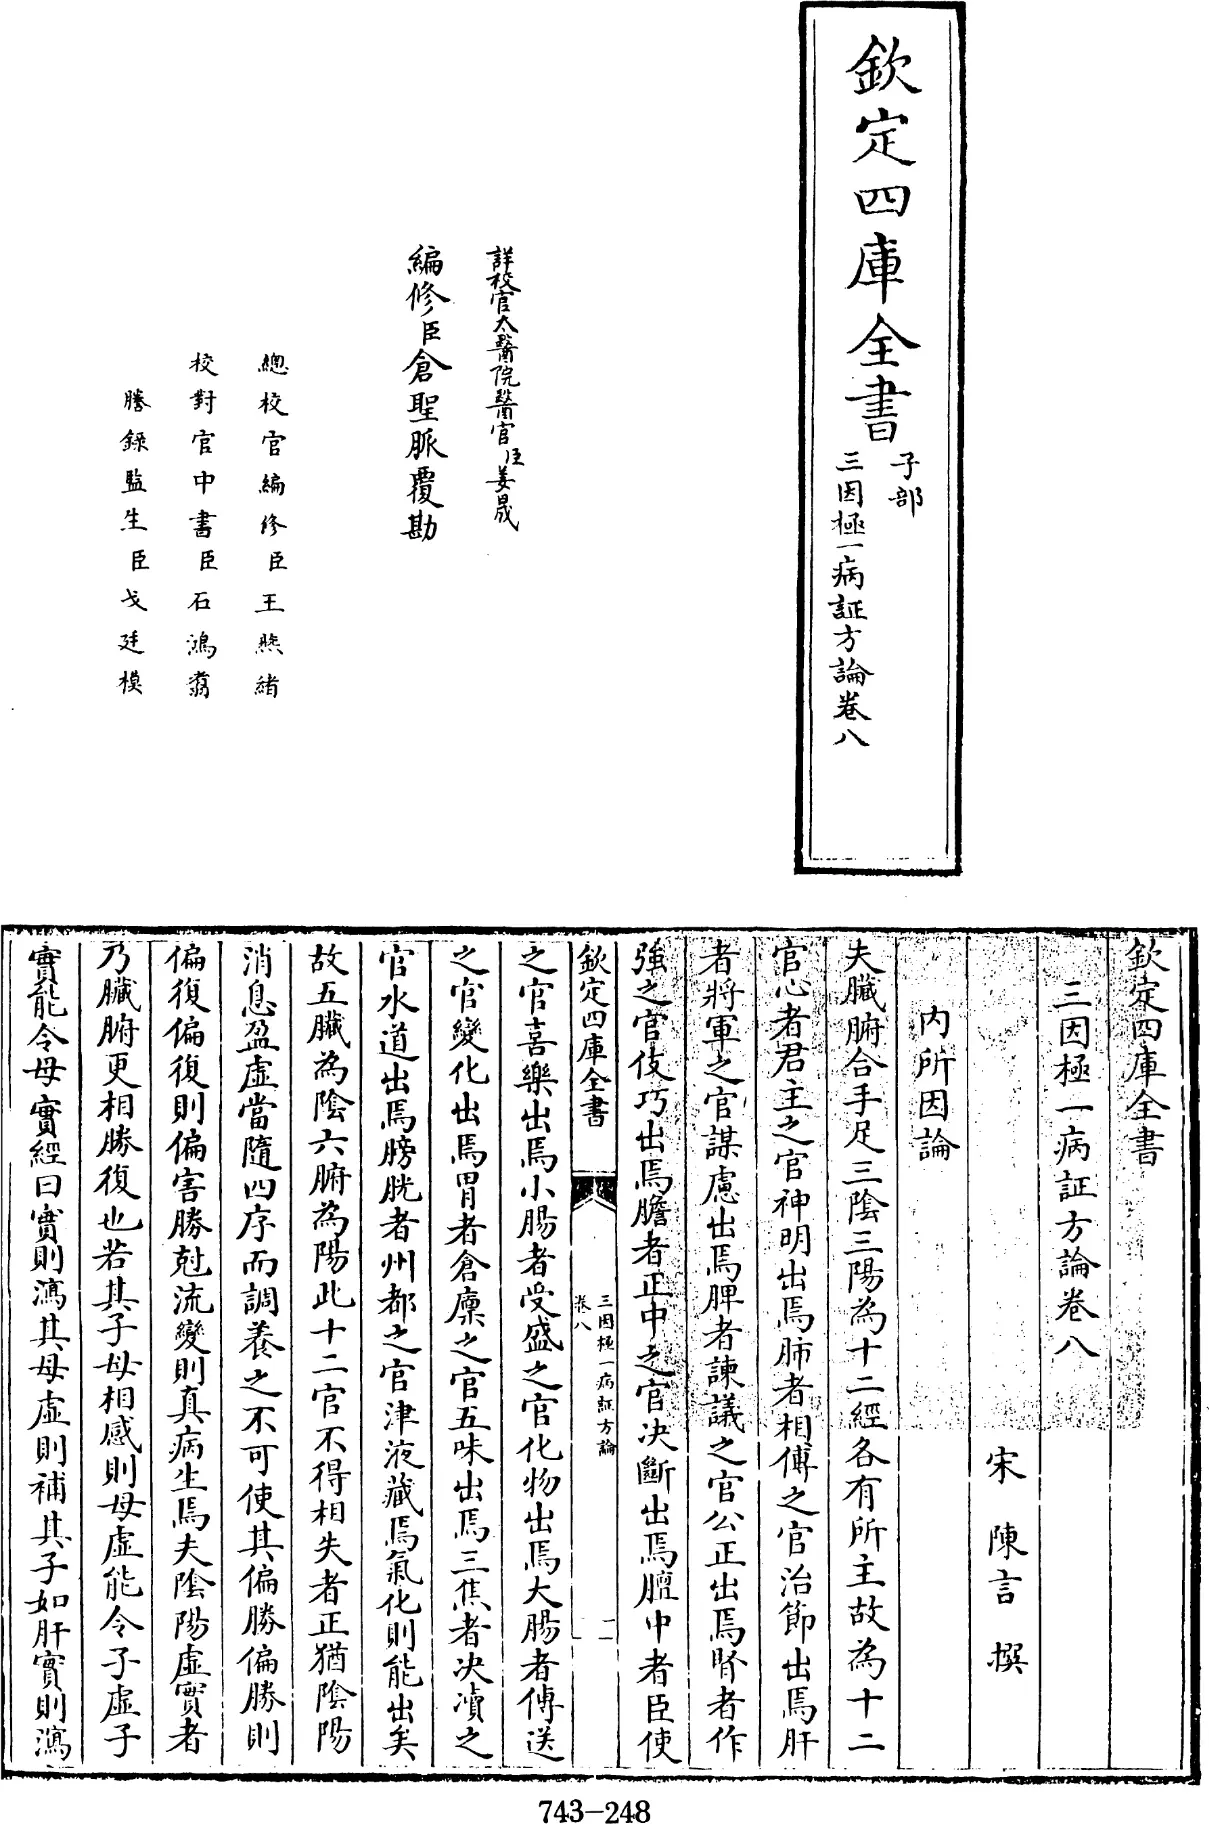 欽定四庫全書
子部
三因極一病証方論卷八
詳校官太醫院醫官臣姜晟
編修臣倉聖脈覆勘
總校官編修臣王燕緒
校對官中書臣石鴻翥
謄錄監生臣戈廷模
欽定四庫全書
三因極一病証方論卷八
宋 陳言 撰
內所因論
夫臟腑合手足三陰三陽為十二經各有所主故為十二
官心者君主之官神明出焉肺者相傅之官治節出焉肝
者將軍之官謀慮出焉脾者諫議之官公正出焉腎者作
強之官伎巧出焉膽者正中之官决斷出焉膻中者臣使
欽定四庫全書
三因極一病証方論
卷八
一
之官喜樂出焉小腸者受盛之官化物出焉大腸者傳送
之官變化出焉胃者倉廩之官五味出焉三焦者决瀆之
官水道出焉膀胱者州都之官津液藏焉氣化則能出矣
故五臟為陰六腑為陽此十二官不得相失者正猶陰陽
消息盈虛當隨四序而調養之不可使其偏勝偏勝則
偏復偏復則偏害勝尅流變則真病生焉夫陰陽虛實者
乃臟腑更相勝復也若其子母相感則母虛能令子虛子
實能令母實經曰實則瀉其母虛則補其子如肝實則瀉
743-248